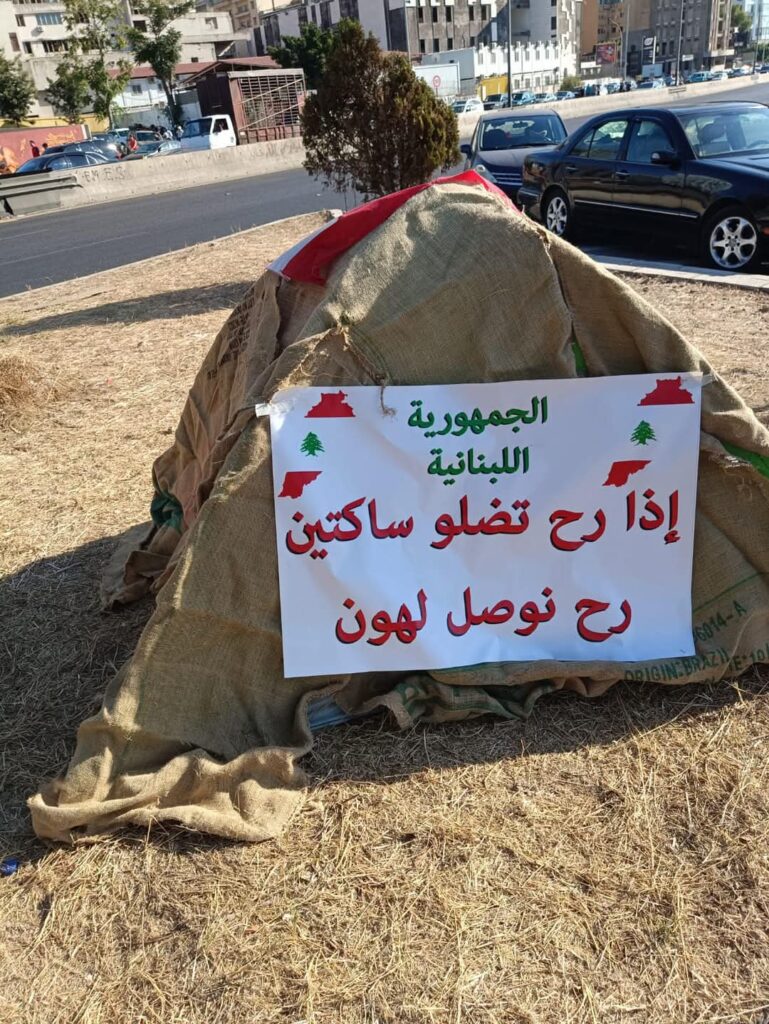 الجمهورية
اللبنانية
إذا رح تضلو ساكتين
رح نوصل لهون
6014-A
ORIGIN:BRAZIL